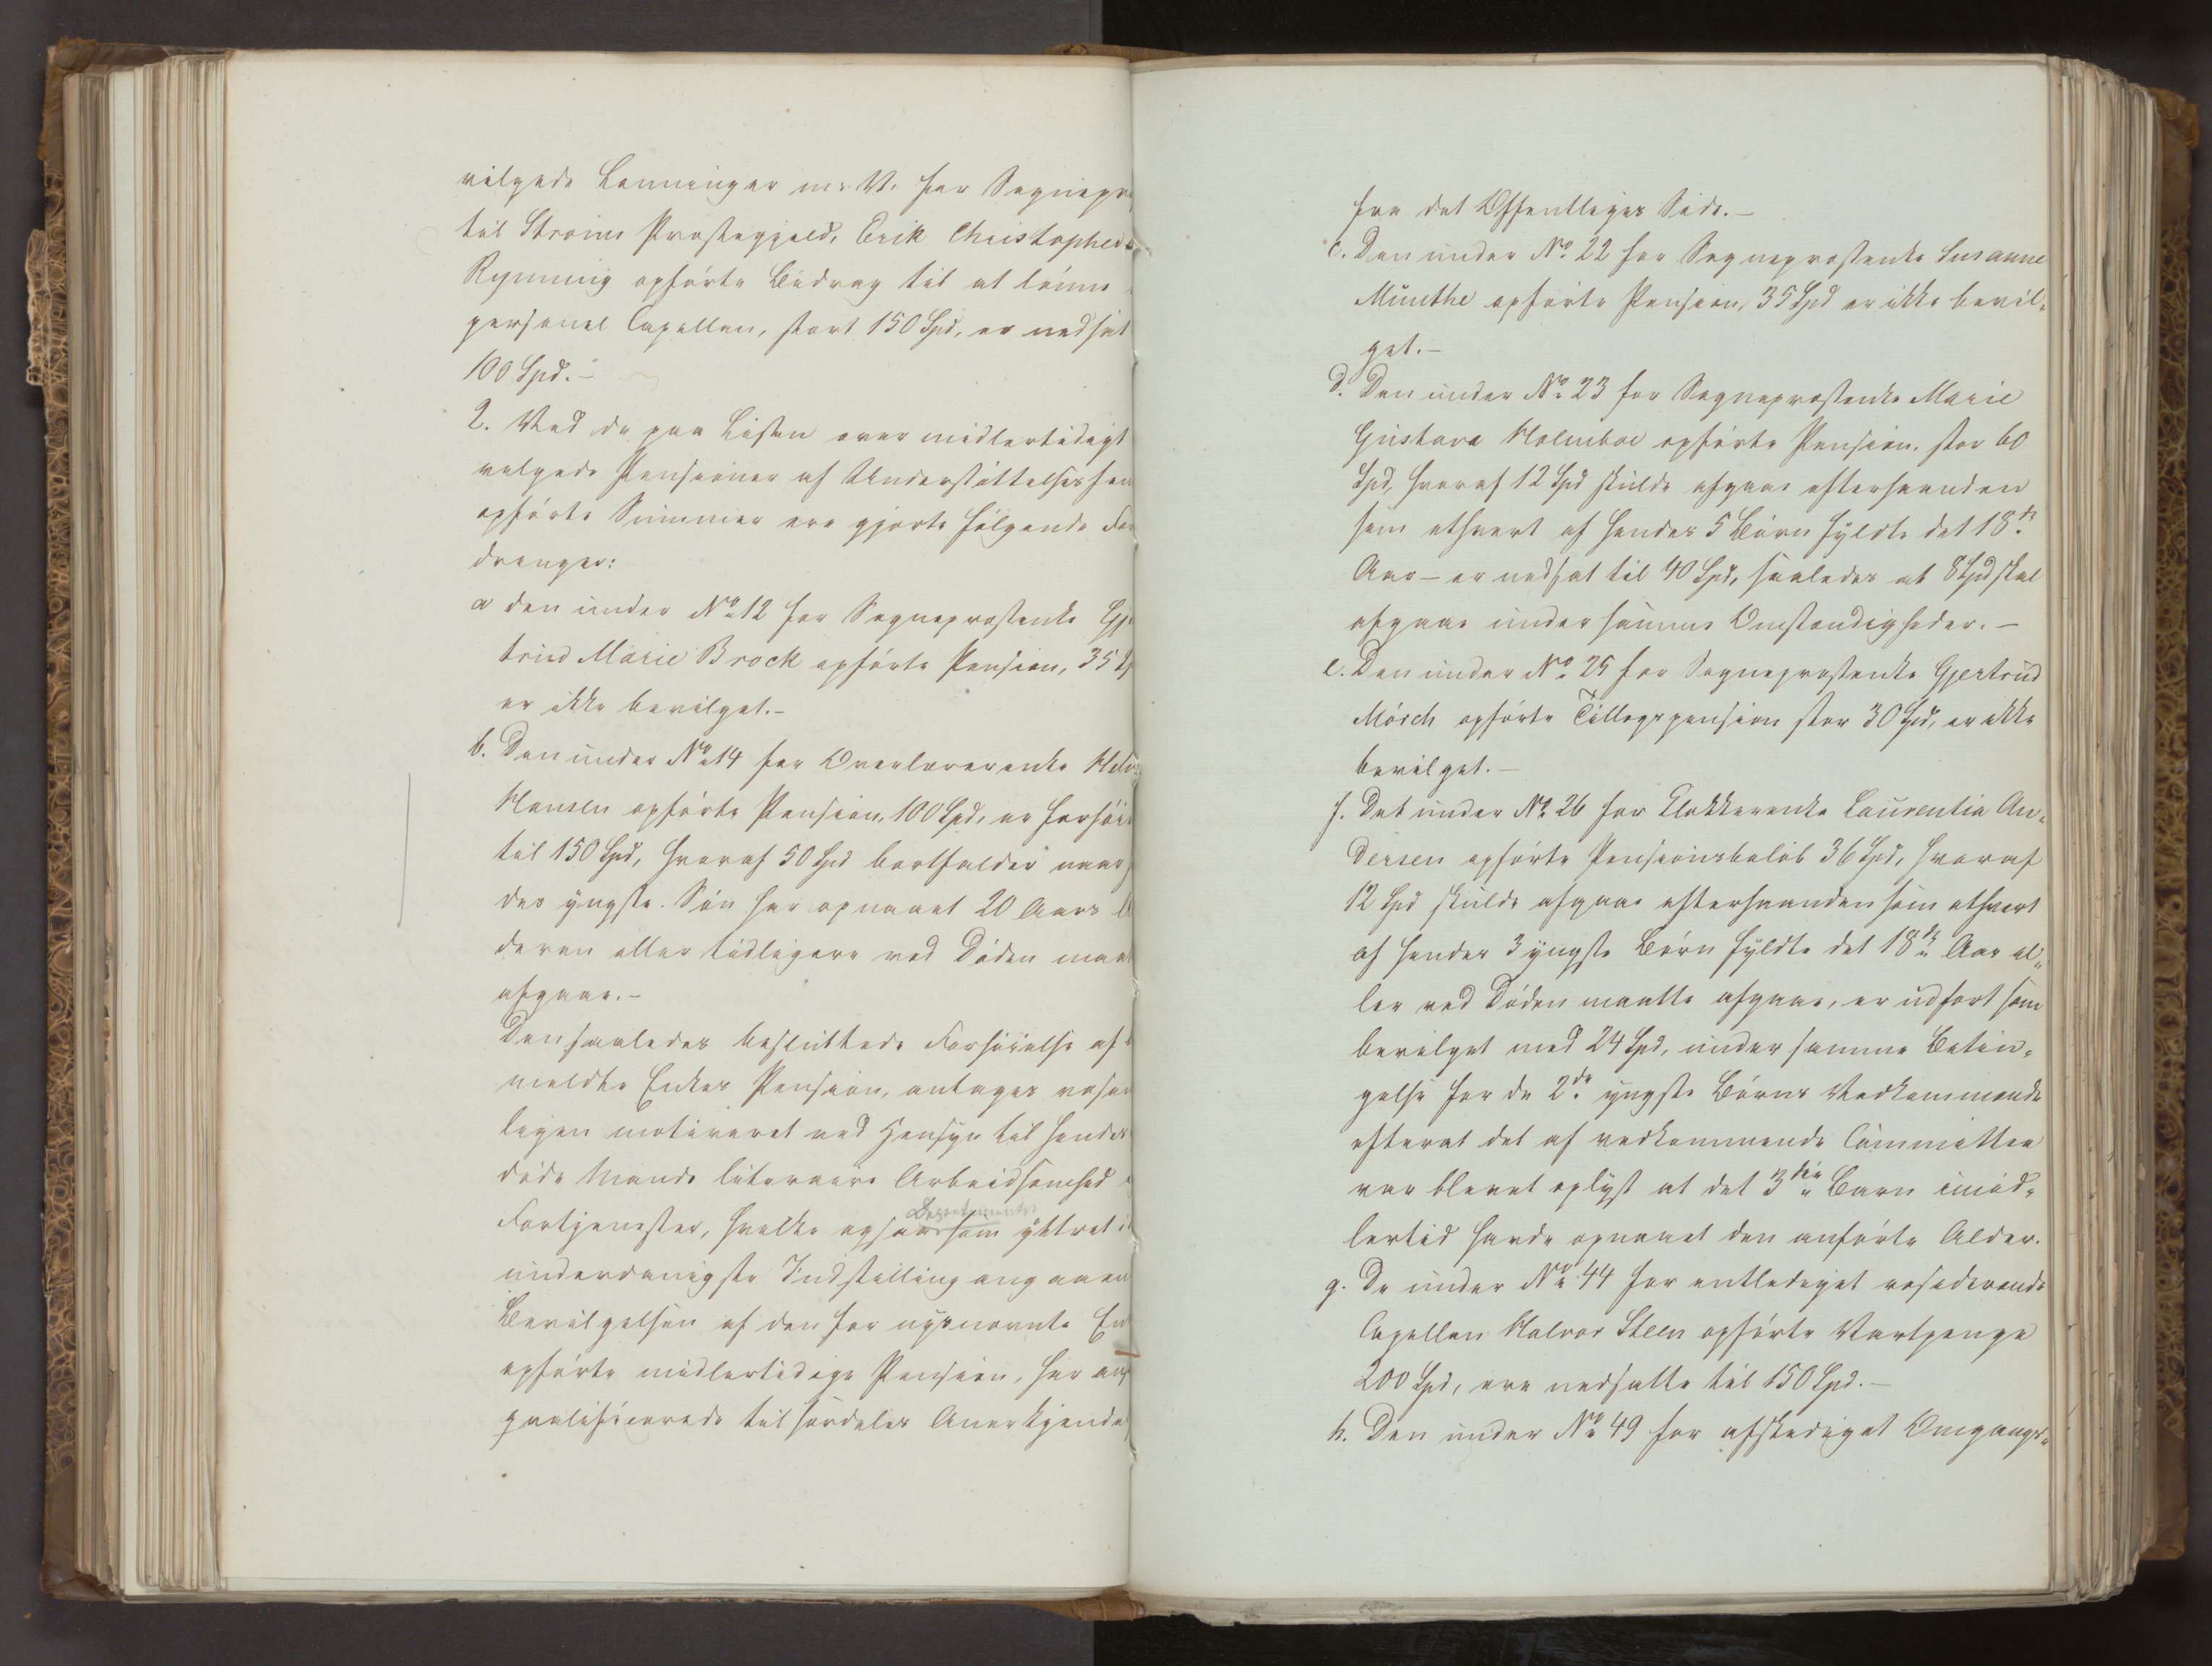 vilgede Lønninger m. V. for Sognepr
til Strøms Præstegjæld, Erik Christopher
Rynning opførte Bidrag til at lønne
personel Capellan, stort 150 Spd, er nedsat
100 Spd.-
2. Ved de paa Listen over midlertidigt
vilgede Pensioner af Understøttelsesfon
opførte Summer ere gjorte følgende For
dringer:
a den under No 12 for Sognepræstenke Gj
trud Marie Brock opførte Pension, 35 S
er ikke bevilget.-
b. Den under No 14 for Overlærerenke
Hansen opførte Pension, 100 Spd, er forhøiet
til 150 Spd, hvoraf 50 Spd bortfalder naar
des yngste Søn har opnaaet 20 Aars
deren eller tidligere ved Døden maat
afgaae.-
Den saaledes besluttede Forhøielse af
meldte Enkes Pension, antages
ligen motiveret ved Hensyn til hendes
døde Mands literaire Arbeidsomhed
Fortjenester, hvilke ogsaa som yttret i
Departementet
underdanigste Indstilling angaaen
Bevilgelsen af den for nysnævnte En
opførte midlertidige Pension, har an
qvalificerede til særdeles Anerkjende
fra det Offentliges Side.-
c. Den under No 22 for Sognepræstenke Susanne
Münthe opførte Pension, 35 Spd er ikke bevil-
get.-
d. Den under No 23 for Sognepræstenke Marie
Gustava Holmboe opførte Pension, stor 60
Spd, hvoraf 12 Spd skulde afgaae efterhaanden
som ethvert af hendes 5 Børn fyldte det 18de
Aar - er nedsat til 40 Spd, saaledes at 8 Spd skal
afgaae under samme Omstændigheder.-
e. Den under No 25 for Sognepræstenke Gjertrud
Mörch opførte Tillægspension stor 30 Spd, er ikke
bevilget.-
f. Det under No 26 for Klokkerenke Laurentia An-
dersen opførte Pensionsbeløb 36 Spd, hvoraf
12 Spd skulde afgaae efterhaanden som ethvert
af hendes 3 yngste Børn fyldte det 18de Aar el-
ler ved Døden maatte afgaae, er udført som
bevilget med 24 Spd, under samme Betin-
gelse for de 2de yngste Børns Vedkommende
efterat det af vedkommende Committee
var blevet oplyst at det 3die Barn imid-
lertid havde opnaaet den anførte Alder.
g. De under No 44 for entlediget residerende
Capellan Halvor Steen opførte Vartpenge
200 Spd, ere nedsatte til 150 Spd.-
h. Den under No 49 for afskediget Omgangs-